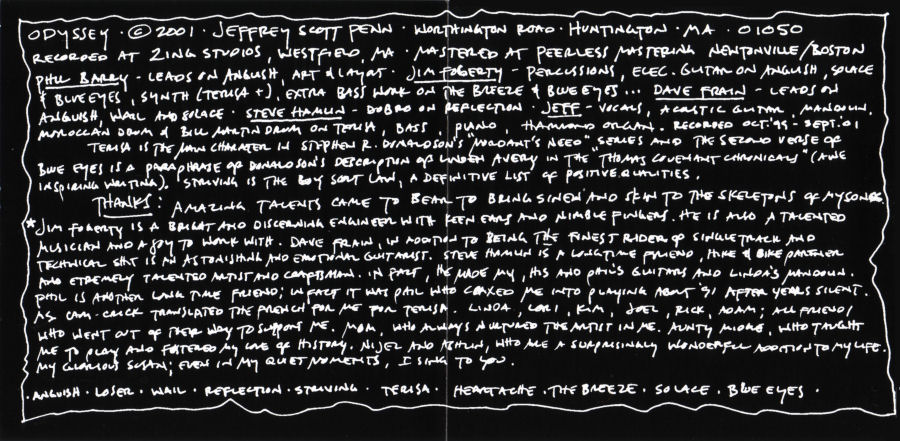 ODYSSEY · © 2001 · JEFFREY SCOTT PENN · WORTHINGTON ROAD · HUNTINGTON · MA · 01050
RECORDED AT ZING STUDIOS, WESTFIELD, MA · MASTERED AT PEERLESS MASTERING NEWTONVILLE/BOSTON
PHIL BARRY - LEADS ON ANGUISH, ART & LAYOT · JIM FOGERTY - PERCUSSIONS, ELEC. GUITAR ON ANGUISH, SOLACE
& BLUE EYES, SYNTH (TERISA +), EXTRA BASS WORK ON THE BREEZE & BLUE EYES... DAVE FRAIN - LEADS ON
ANGUISH, WAIL AND SOLACE · STEVE HAMLIN - DOBRO ON REFLECTION · JEFF - VOCALS, ACOUSTIC GUITAR, MANDOLIN,
MOROCCAN DRUM & BILL MARTIN DRUM ON TERISA, BASS, PIANO, HAMMOND ORGAN. RECORDED OCT. '95 - SEPT. '01
TERISA IS THE MAIN CHARATER IN STEPHEN R. DONALDSON'S "MORDANT'S NEED" SERIES AND THE SECOND VERSE OF
BLUE EYES IS A PARAPHRASE OF DONALDSON'S DESCRIPTION OF LINDEN AVERY IN THE "THOMAS COVENANT CHRONICALS" (AWE
INSPIRING WRITING). STRIVING IS THE BOY SCOUT LAW, A DEFINITIVE LIST OF POSITIVE QUALITIES.
THANKS: AMAZING TALENTS CAME TO BEAR TO BRING SINEW AND SKIN TO THE SKELETONS OF MY SONGS.
* JIM FOGERTY IS A BRIGHT AND DISCERNING ENGINEER WITH KEEN EARS AND NIMBLE FINGERS. HE IS ALSO A TALENTED
MUSICIAN AND A JOY TO WORK WITH. DAVE FRAIN, IN ADDITION TO BEING THE FINEST RIDER OF SINGLETRACK AND
TECHNICAL SHT IS AN ASTONISHING AND EMOTIONAL GUITARIST. STEVE HAMLIN IS A LONGTIME FRIEND, HIKE & BIKE PARTNER
AND EXTREMELY TALENTED ARTIST AND CRAFTSMAN. IN FACT, HE MADE MY, HIS AND PHIL'S GUITARS AND LINDA'S MANDOLIN.
PHIL IS ANOTHER LONG TIME FRIEND; IN FACT IT WAS PHIL WHO COAXED ME INTO PLAYING ABOUT '91 AFTER YEARS SILENT.
CAM TRANSLATED THE FRENCH FOR ME FOR TERISA. LINDA, LORI, KIM, JOEL, RICK, ADAM; ALL FRIENDS
WHO WENT OUT OF THEIR WAY TO SUPPORT ME. MOM, WHO ALWAYS NURTURED THE ARTIST IN ME. AUNTY MIDGE, WHO TAUGHT
ME TO PLAY AND FOSTERED MY LOVE OF HISTORY. NIJEL AND ASHLIN, WHO ARE A SURPRISINGLY WONDERFUL ADDITION TO MY LIFE.
MY GLORIOUS SUSAN; EVEN IN MY QUIET MOMENTS, I SING TO YOU.
· ANGUISH · LOSER · WAIL · REFLECTION · STRIVING · TERISA · HEARTACHE · THE BREEZE · SOLACE · BLUE EYES ·